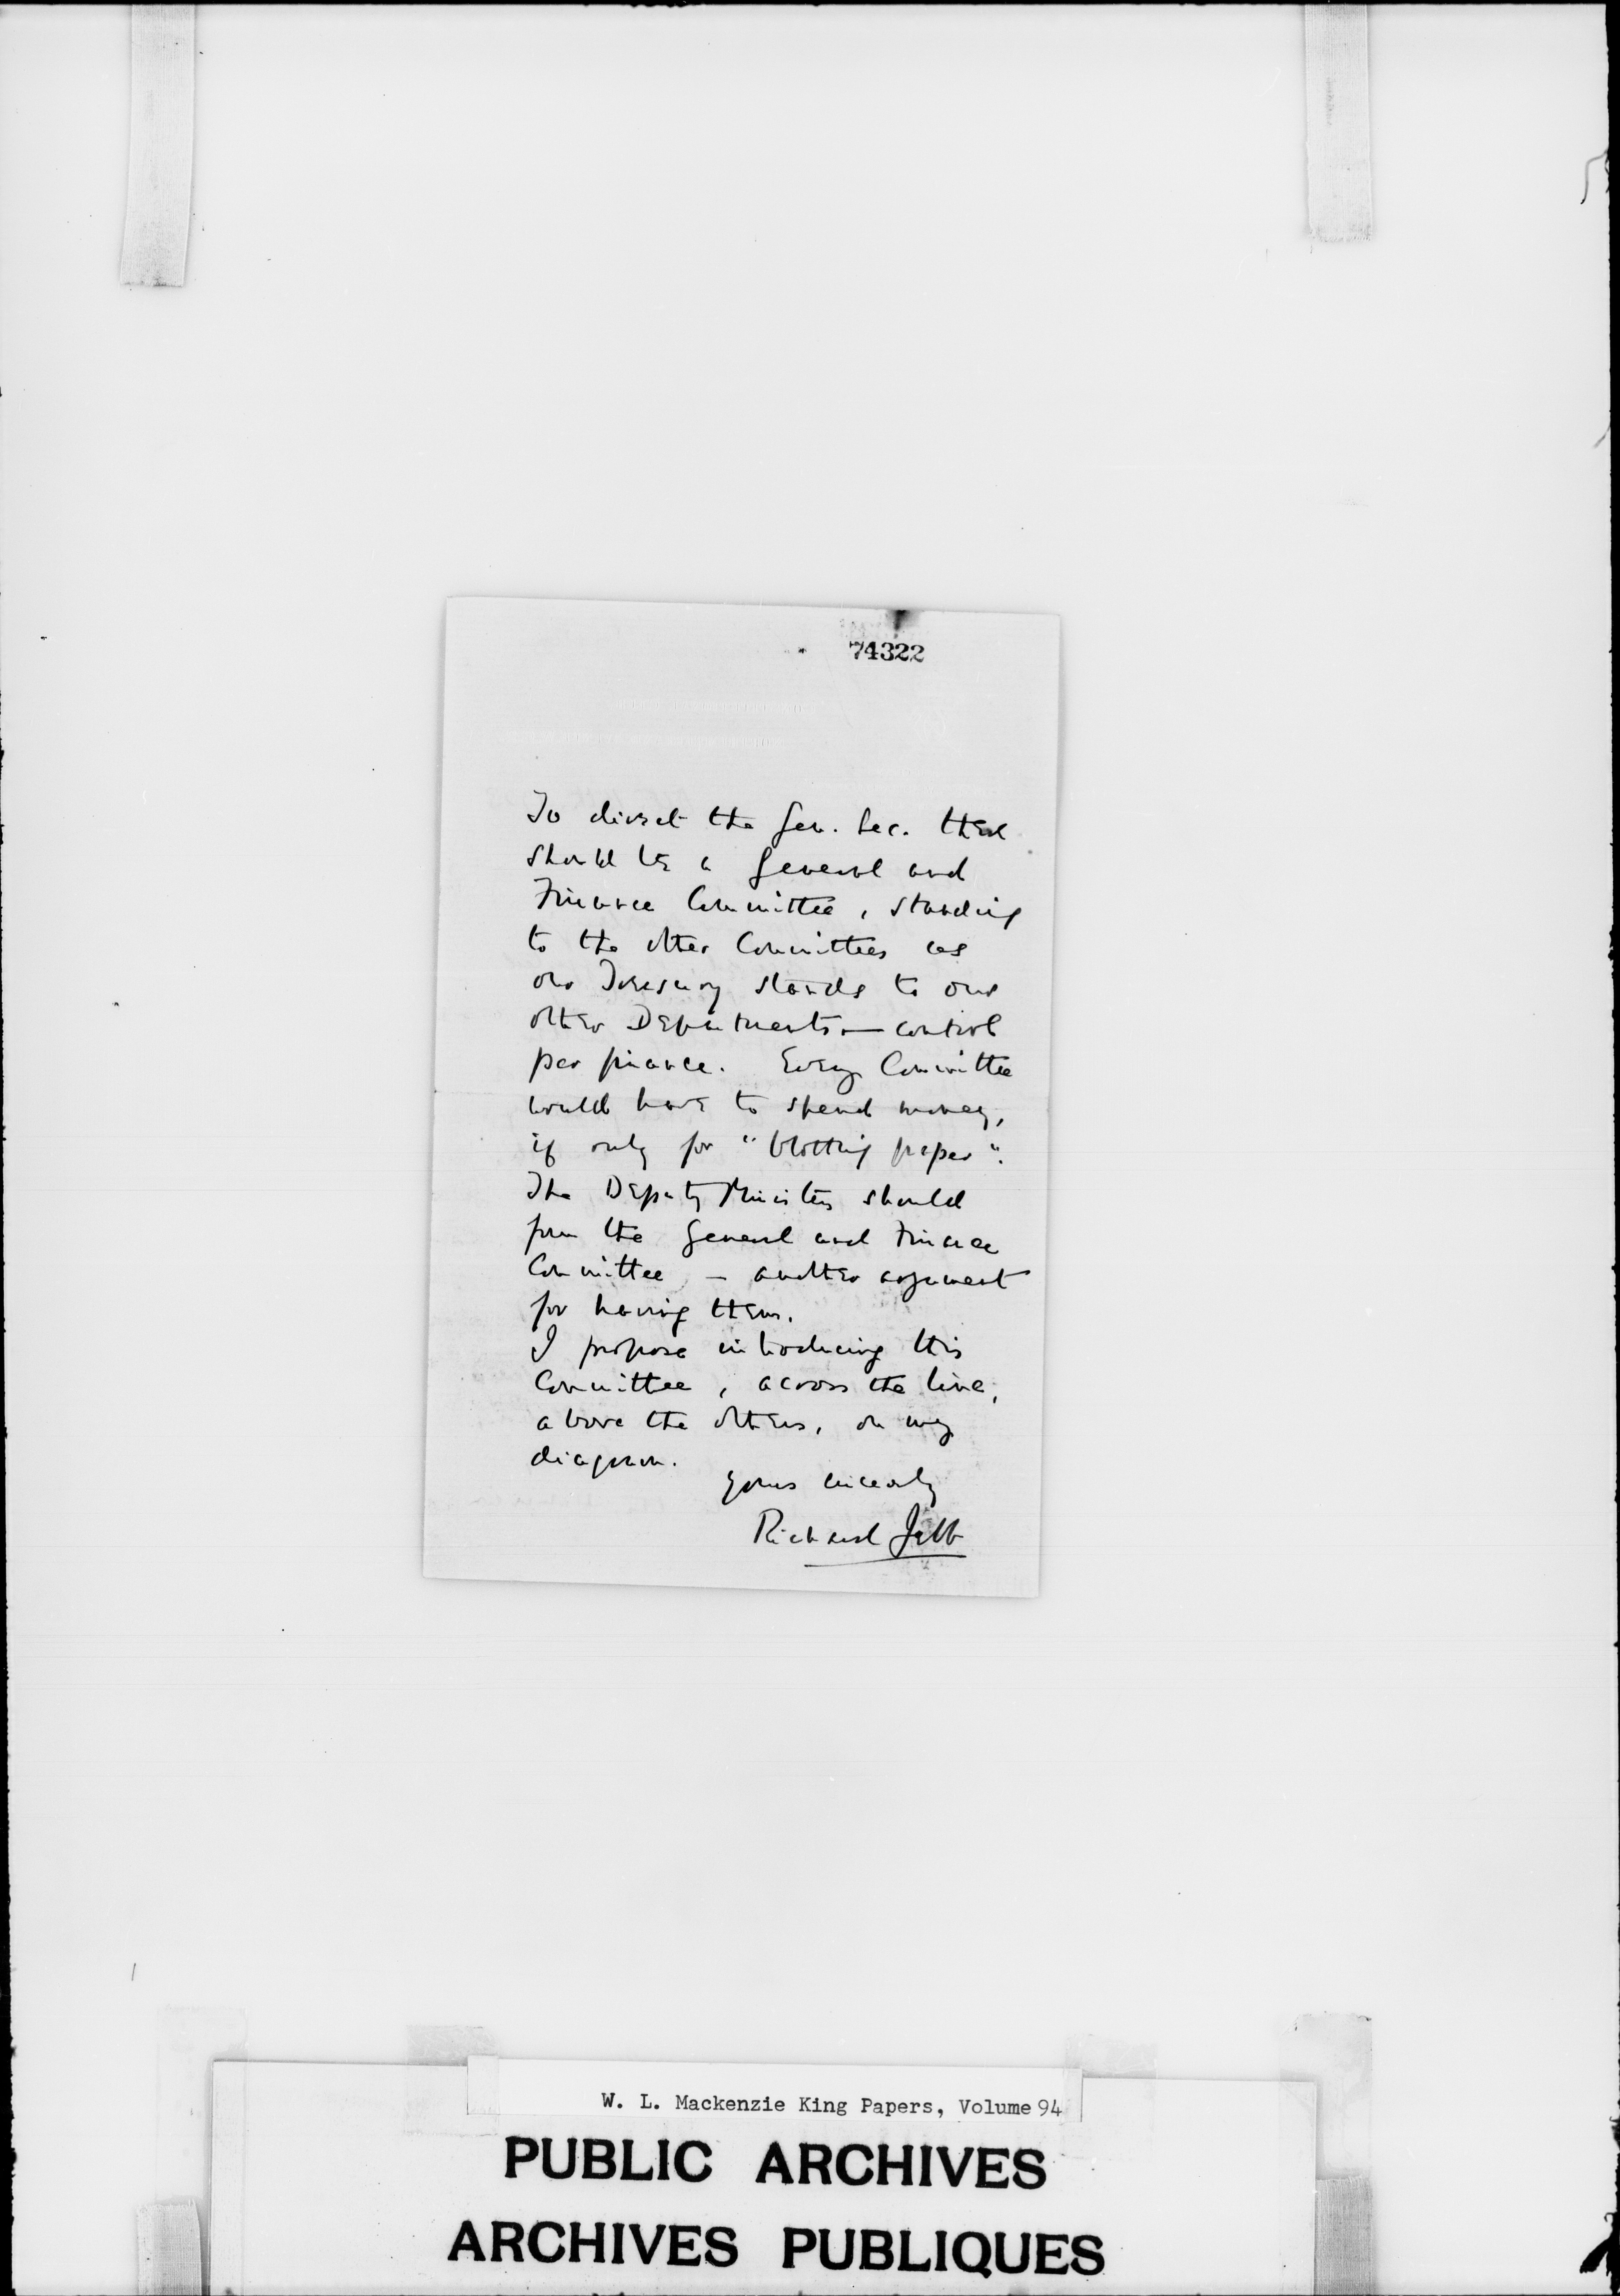 74322
To direct the Gen. Sec. there
should be a General and
Finance Committee, standing
to the other Committees as
our Treasury stands to our
other Departments — control
per finance. Every Committee
would have to spend money,
if only for "blotting paper".
The Deputy Ministers should
form the General and Finance
Committee — another argument
for having them.
I propose introducing this
Committee, across the line,
above the others, on my
diagram.
Yours sincerely
Richard Jebb
W. L. Mackenzie King Papers, Volume 94
PUBLIC ARCHIVES
ARCHIVES PUBLIQUES